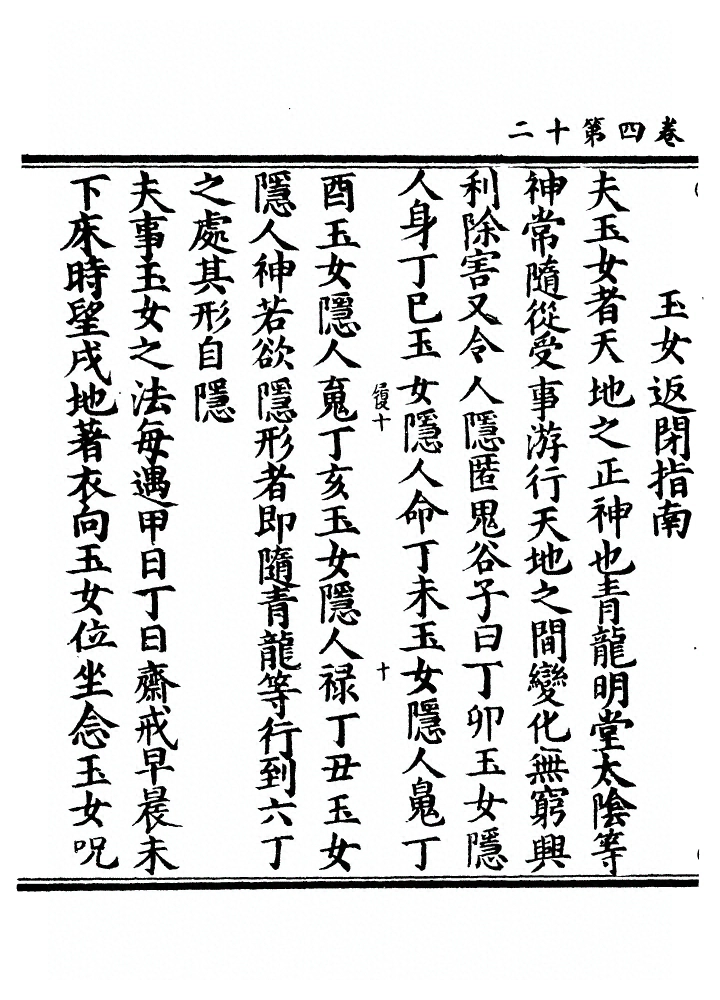 卷四第十二
玉女返閉指南
夫玉女者天地之正神也青龍明堂太陰等
神常隨從受事游行天地之間變化無窮興
利除害又令人隱匿鬼谷子曰丁卯玉女隱
人身丁巳玉女隱人命丁未玉女隱人魄丁
履十
十
酉玉女隱人魂丁亥玉女隱人禄丁丑玉女
隱人神若欲隱形者即隨青龍等行到六丁
之處其形自隱
夫事玉女之法每遇甲日丁日齋戒早晨未
下床時望戌地著衣向玉女位坐念玉女呪